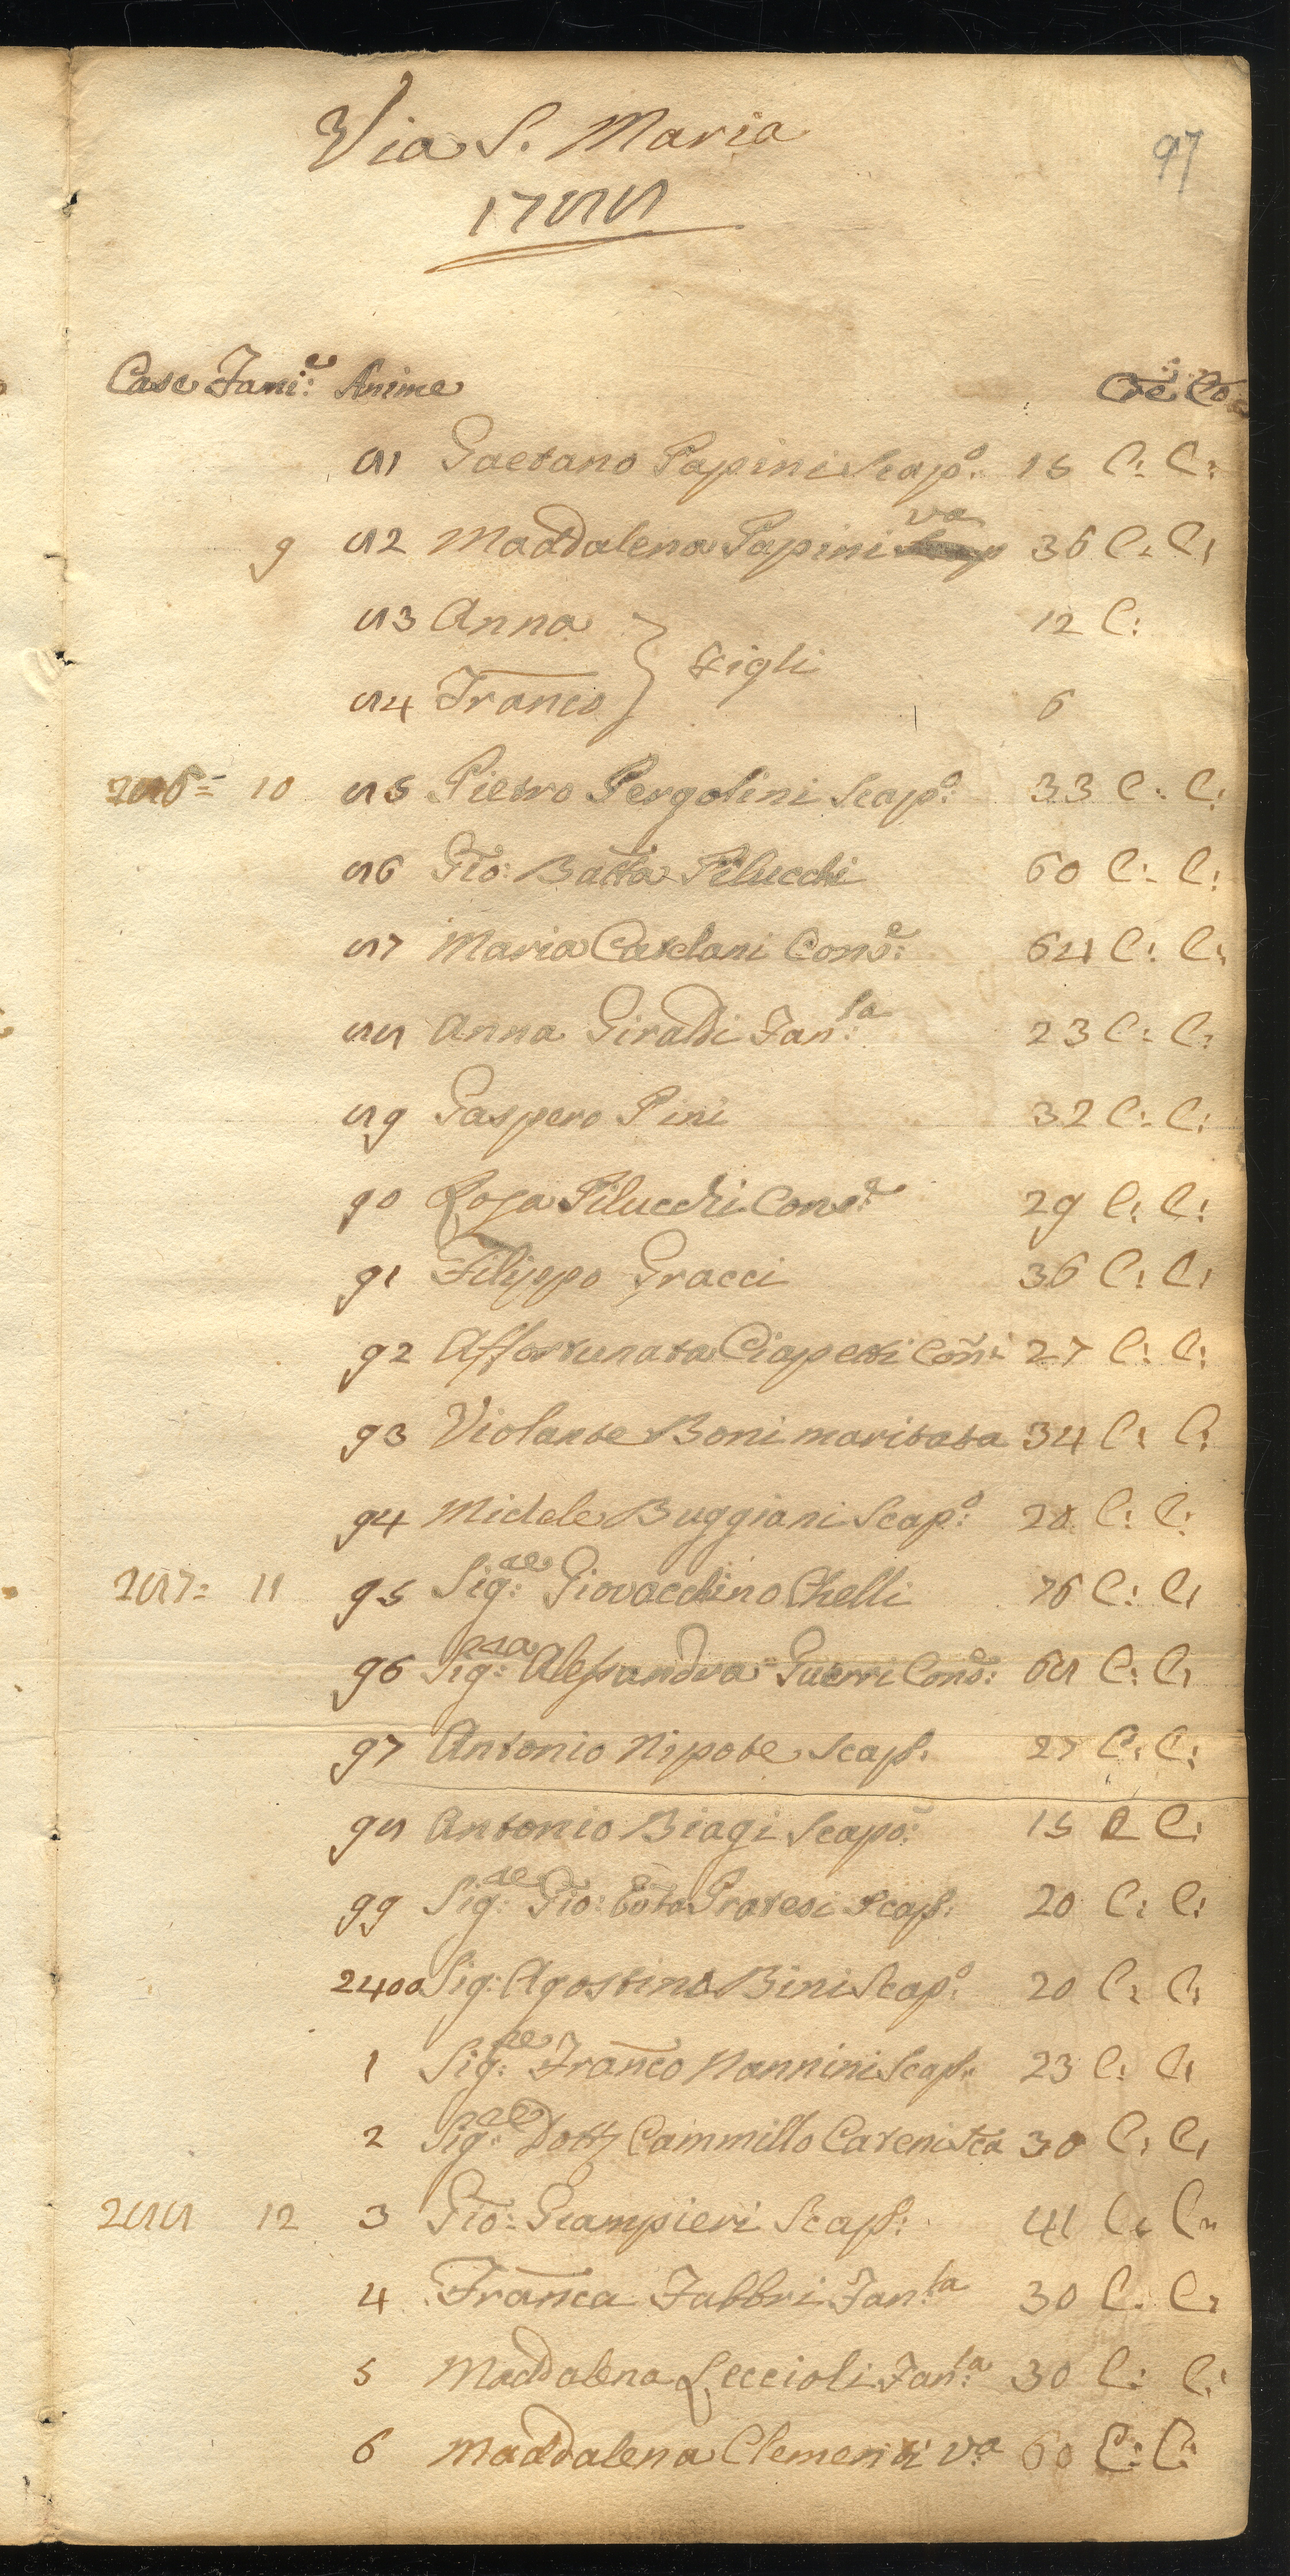 97
Via S. Maria
1788
Case Fami:e Anime Cre: Co:
81 Gaetano Papini Scap:o 15 C: C:
9 82 Maddalena Papini va 36 C: C:
83 Anna 12 C:
} figli
84 Franco 6
286= 10 85 Pietro Pergolini Scap:o 33 C: C:
86 Gio: Batta Pilucchi 60 C: C:
87 Maria Catelani Cons:e 64 C: C:
88 Anna Giraldi Fan:la 23 C: C:
89 Gaspero Pini 32 C: C:
90 Rosa Pilucchi Cons:e 29 C: C:
91 Filippo Gracci 36 C: C:
92 Affortunata Ciapetti Con: 27 C: C:
93 Violante Boni maritata 34 C: C:
94 Michele Buggiani Scap:o 28 C: C:
287= 11 95 Sig:re Giovacchino Chelli 76 C: C:
96 Sig:ra Alessandra Guerri Cons:e 68 C: C:
97 Antonio Nipote Scap: 27 C: C:
98 Antonio Biagi Scapo: 15 C C:
99 Sig:re Gio: Bãta Pratesi Scap: 20 C: C:
2400 Sig: Agostino Bini Scap:o 20 C: C:
1 Sig:re Franco Nannini Scap: 23 C: C:
2 Sig:re Dott Cammillo Cateni 30 C: C:
288 12 3 Gio: Giampieri Scap: 41 C: C:
4 Franca Fabbri Fan:la 30 C: C:
5 Maddalena Leccioli Fan:la 30 C: C:
6 Maddalena Clementi va 60 C: C: